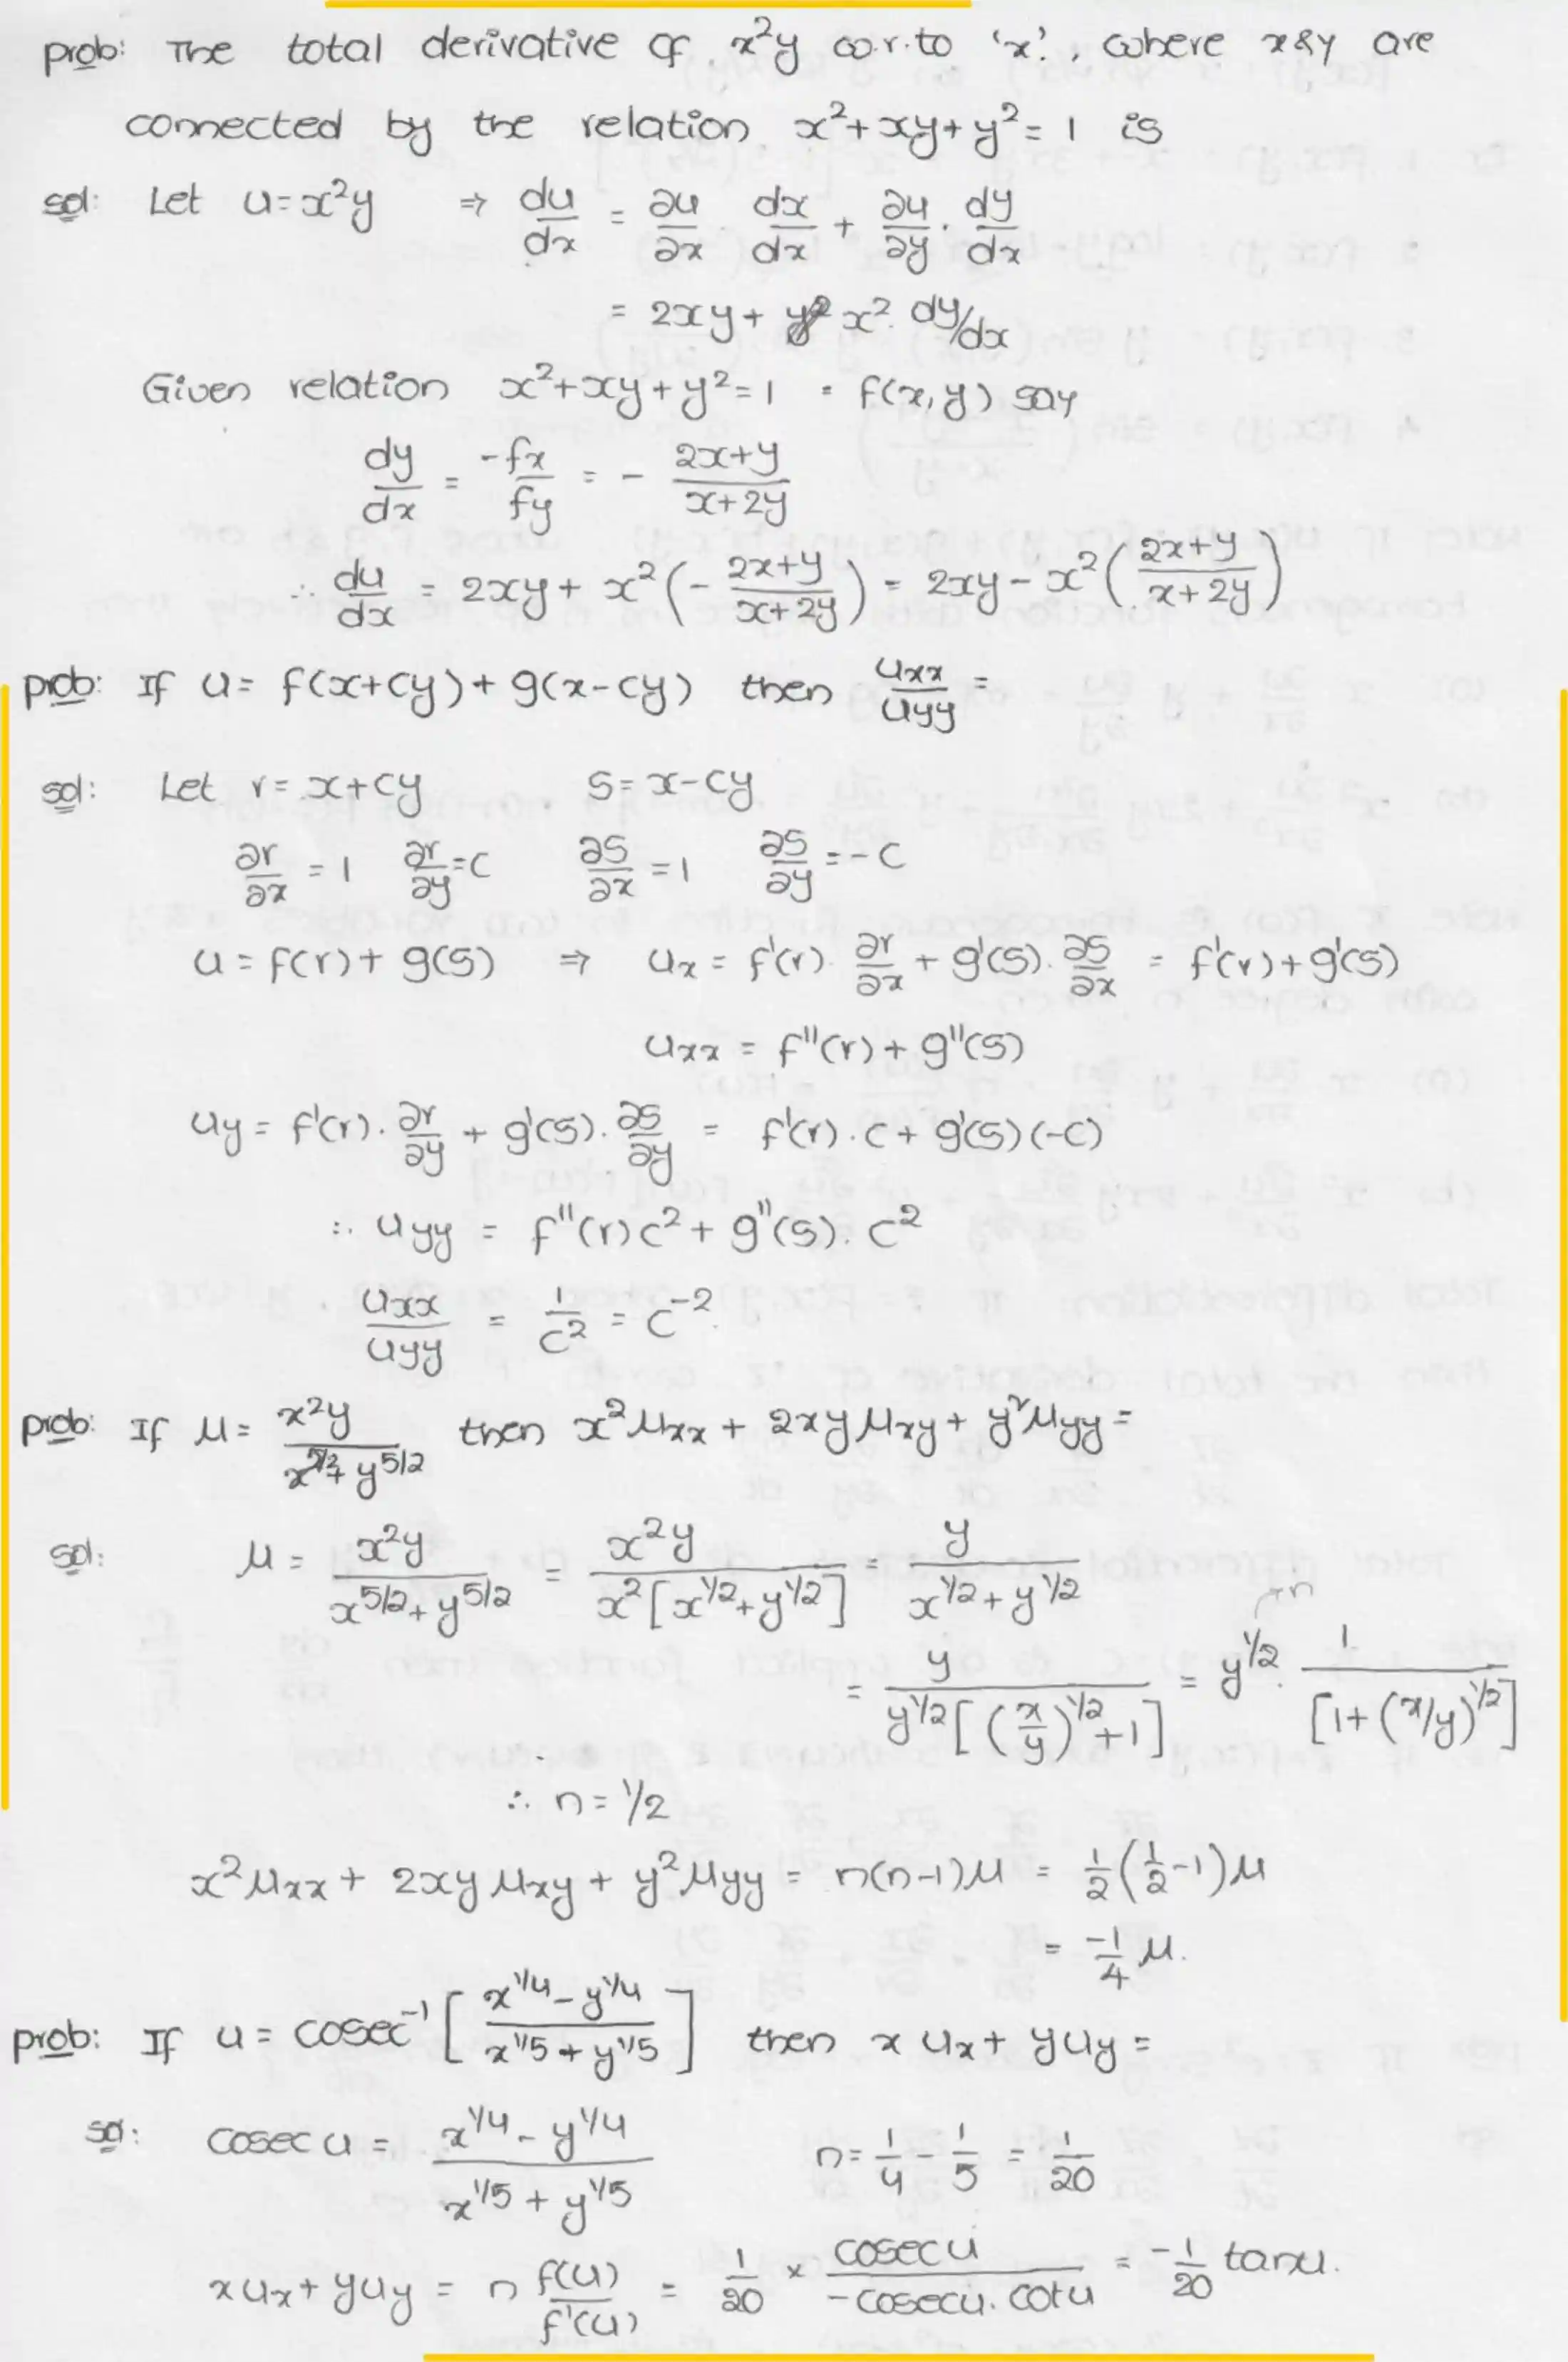 prob: The total derivative of x²y w.r.to 'x'., where x & y are
connected by the relation x²+xy+y²=1 is
sol: Let u=x²y ⇒ du/dx = ∂u/∂x . dx/dx + ∂u/∂y . dy/dx
= 2xy + x². dy/dx
Given relation x²+xy+y²=1 = f(x,y) say
dy/dx = -fx/fy = - (2x+y)/(x+2y)
∴ du/dx = 2xy + x²(- (2x+y)/(x+2y)) = 2xy - x²((2x+y)/(x+2y))
prob: If u= f(x+cy)+g(x-cy) then uxx/uyy =
sol: Let r= x+cy s= x-cy
∂r/∂x = 1 ∂r/∂y = c ∂s/∂x = 1 ∂s/∂y = -c
u = f(r)+ g(s) ⇒ ux = f'(r). ∂r/∂x + g'(s). ∂s/∂x = f'(r)+g'(s)
uxx = f''(r)+ g''(s)
uy = f'(r). ∂r/∂y + g'(s). ∂s/∂y = f'(r).c + g'(s)(-c)
∴ uyy = f''(r)c² + g''(s). c²
uxx/uyy = 1/c² = c⁻².
prob: If μ = x²y/(x^5/2 + y^5/2) then x²μxx + 2xyμxy + y²μyy =
sol: μ = x²y/(x^5/2 + y^5/2) = x²y/(x²[x^1/2 + y^1/2]) = y/(x^1/2 + y^1/2)
= y/(y^1/2[(x/y)^1/2 + 1]) = y^1/2 →n . 1/[1+(x/y)^1/2]
∴ n = 1/2
x²μxx + 2xyμxy + y²μyy = n(n-1)μ = 1/2(1/2 -1)μ
= -1/4 μ.
prob: If u = cosec⁻¹[(x^1/4 - y^1/4)/(x^1/5 + y^1/5)] then x ux + y uy =
sol: cosec u = (x^1/4 - y^1/4)/(x^1/5 + y^1/5) n = 1/4 - 1/5 = 1/20
xux + yuy = n f(u)/f'(u) = 1/20 × cosec u/(-cosec u. cot u) = -1/20 tanu.